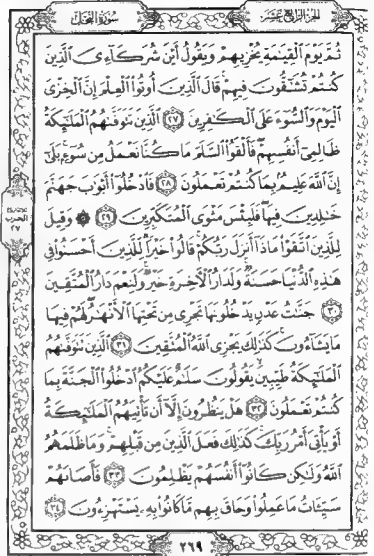 الجزء الرابع عشر
سورة النحل
ثُمَّ يَوْمَ ٱلْقِيَٰمَةِ يُخْزِيهِمْ وَيَقُولُ أَيْنَ شُرَكَآءِىَ ٱلَّذِينَ
كُنتُمْ تُشَٰٓقُّونَ فِيهِمْ ۚ قَالَ ٱلَّذِينَ أُوتُوا۟ ٱلْعِلْمَ إِنَّ ٱلْخِزْىَ
ٱلْيَوْمَ وَٱلسُّوٓءَ عَلَى ٱلْكَٰفِرِينَ ٢٧ ٱلَّذِينَ تَتَوَفَّىٰهُمُ ٱلْمَلَٰٓئِكَةُ
ظَالِمِىٓ أَنفُسِهِمْ ۖ فَأَلْقَوُا۟ ٱلسَّلَمَ مَا كُنَّا نَعْمَلُ مِن سُوٓءٍۭ ۚ بَلَىٰٓ
إِنَّ ٱللَّهَ عَلِيمٌۢ بِمَا كُنتُمْ تَعْمَلُونَ ٢٨ فَٱدْخُلُوٓا۟ أَبْوَٰبَ جَهَنَّمَ
خَٰلِدِينَ فِيهَا ۖ فَلَبِئْسَ مَثْوَى ٱلْمُتَكَبِّرِينَ ٢٩ ۞ وَقِيلَ
لِلَّذِينَ ٱتَّقَوْا۟ مَاذَآ أَنزَلَ رَبُّكُمْ ۚ قَالُوا۟ خَيْرًا ۗ لِّلَّذِينَ أَحْسَنُوا۟ فِى
هَٰذِهِ ٱلدُّنْيَا حَسَنَةٌ ۚ وَلَدَارُ ٱلْءَاخِرَةِ خَيْرٌ ۚ وَلَنِعْمَ دَارُ ٱلْمُتَّقِينَ
٣٠ جَنَّٰتُ عَدْنٍ يَدْخُلُونَهَا تَجْرِى مِن تَحْتِهَا ٱلْأَنْهَٰرُ ۖ لَهُمْ فِيهَا
مَا يَشَآءُونَ ۚ كَذَٰلِكَ يَجْزِى ٱللَّهُ ٱلْمُتَّقِينَ ٣١ ٱلَّذِينَ تَتَوَفَّىٰهُمُ
ٱلْمَلَٰٓئِكَةُ طَيِّبِينَ ۙ يَقُولُونَ سَلَٰمٌ عَلَيْكُمُ ٱدْخُلُوا۟ ٱلْجَنَّةَ بِمَا
كُنتُمْ تَعْمَلُونَ ٣٢ هَلْ يَنظُرُونَ إِلَّآ أَن تَأْتِيَهُمُ ٱلْمَلَٰٓئِكَةُ
أَوْ يَأْتِىَ أَمْرُ رَبِّكَ ۚ كَذَٰلِكَ فَعَلَ ٱلَّذِينَ مِن قَبْلِهِمْ ۚ وَمَا ظَلَمَهُمُ
ٱللَّهُ وَلَٰكِن كَانُوٓا۟ أَنفُسَهُمْ يَظْلِمُونَ ٣٣ فَأَصَابَهُمْ
سَيِّـَٔاتُ مَا عَمِلُوا۟ وَحَاقَ بِهِم مَّا كَانُوا۟ بِهِۦ يَسْتَهْزِءُونَ ٣٤
الحزب
٢٧
٢٦٩